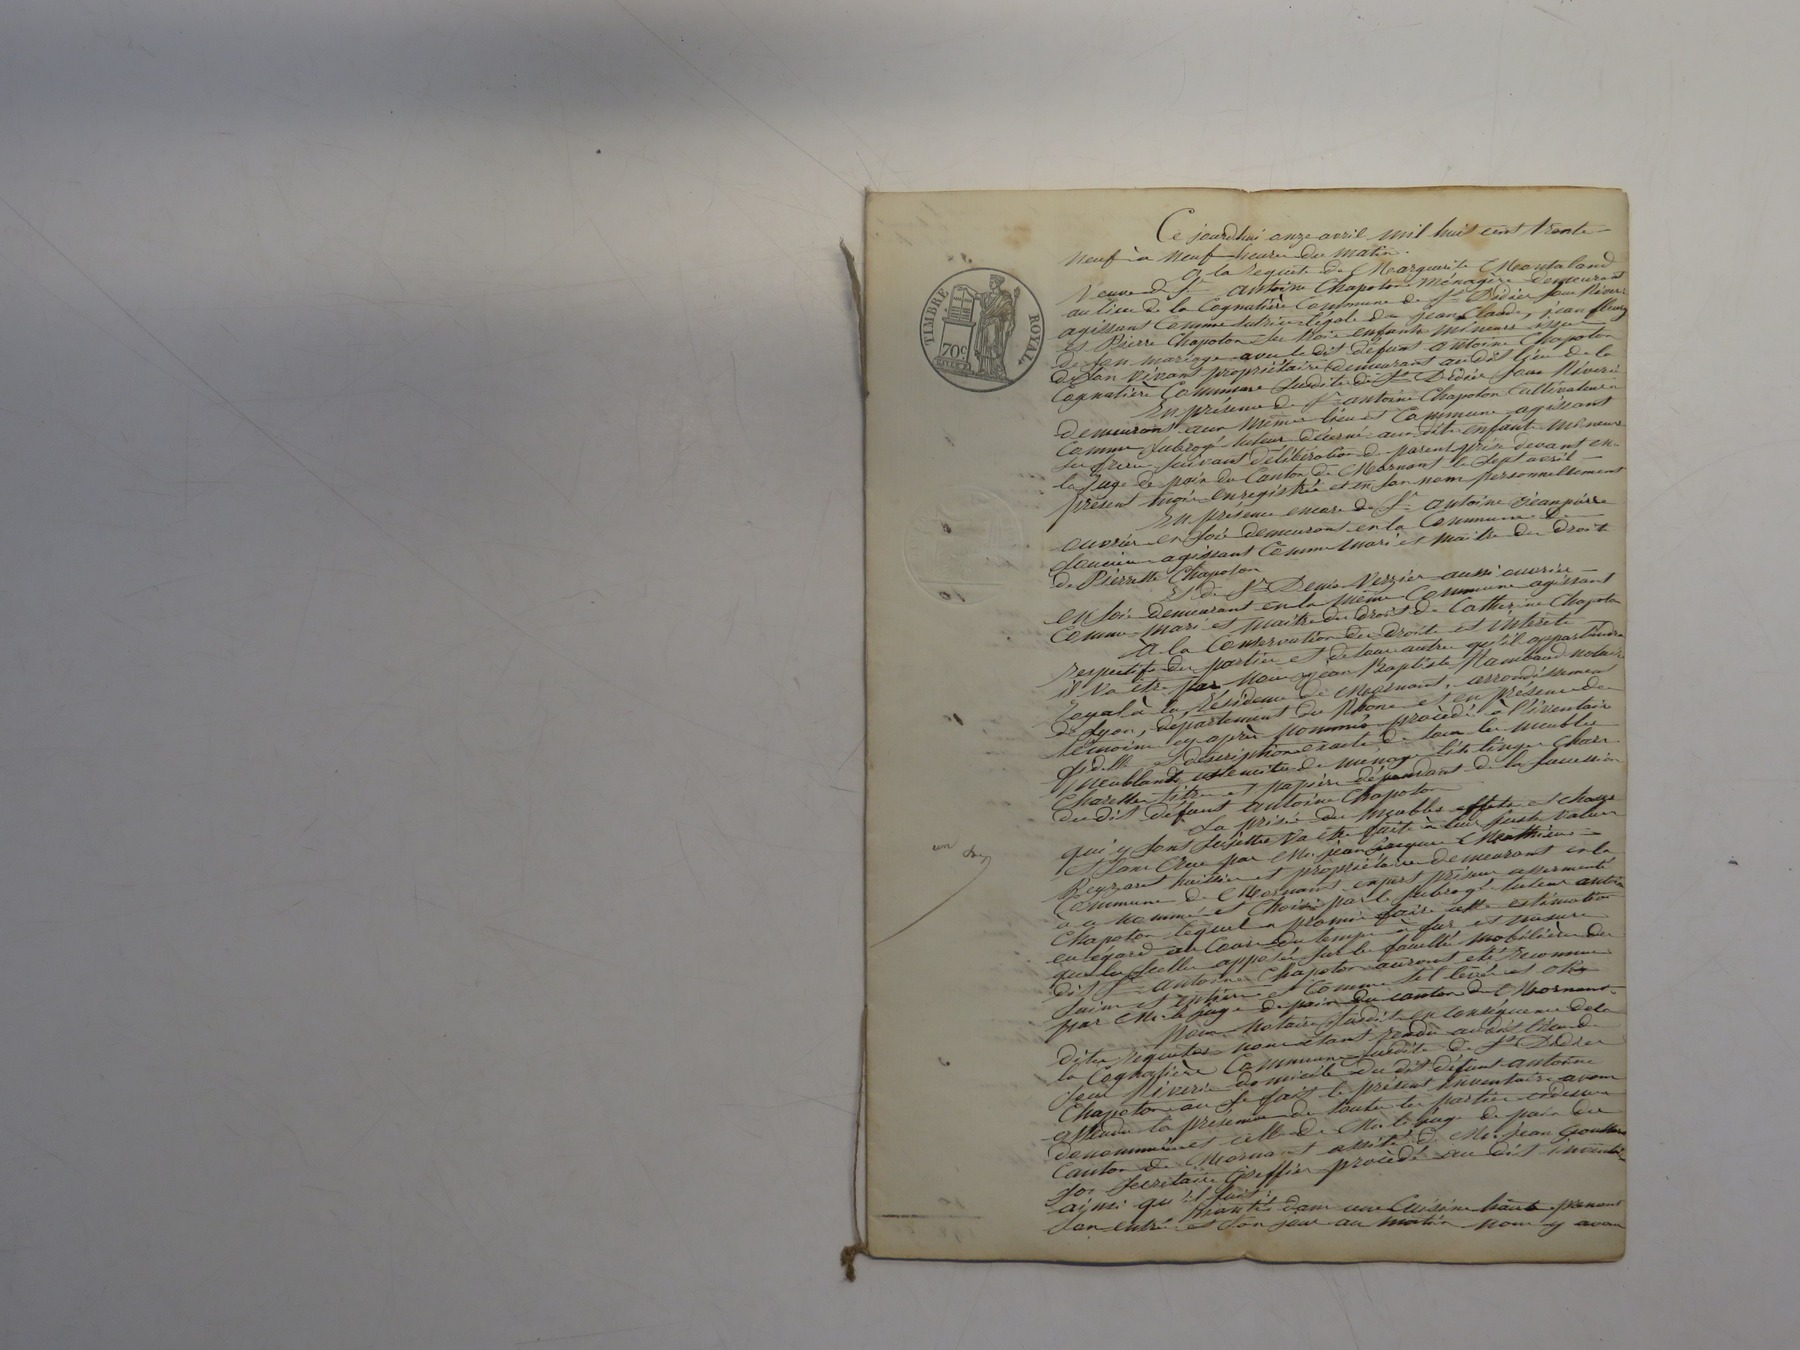 TIMBRE ROYAL
70c
Ce jourdhui onze avril mil huit cent trente
neuf à neuf heures du matin.
a la requete de Marguerite Montaland
Veuve de Sr antoine Chapoton Ménagère demeurant
au lieu de la Cognatière Commune de St Didier sous Riverie
agissant comme tutrice légale de jean Claude, jean fleury
et Pierre Chapoton ses trois enfants mineurs issus
de son mariage avec le dit défunt antoine Chapoton
de son vivant propriétaire demeurant au dit lieu de la
Cognatière Commune susdite de St Didier sous Riverie
En présence de Sr antoine Chapoton Cultivateur
demeurant aux même lieu et Commune agissant
Comme subrogé tuteur décerné aux dits enfants mineurs
suivant délibération de parents prise devant
le juge de paix du Canton de Mornant le sept avril
présent mois enregistrée et en son nom personnellement
En présence encore de Sr antoine jeanpierre
ouvrier en soie demeurant en la Commune de
agissant Comme mari et maitre des droits
de Pierrette Chapoton
Et de Sr Denis Verzier aussi ouvrier
en soie demeurant en la même Commune agissant
Comme mari et maitre des droits de Catherine Chapoton
a la Conservation des droits et intérêts
respectifs des parties et de tous autres qu'il appartiendra
il va être par nous jean Baptiste Rambaud notaire
royal à la Résidence de Mornant, arrondissement
de Lyon, département du Rhone et en présence des
témoins cy après nommés procédé à l'inventaire
fidelle et description exacte de tous les meubles
meublants ustencils de menage lits linges
Charettes titres et papiers dépendant de la succession
du dit défunt antoine Chapoton
La prisée des meubles effets et choses
qui y sont sujettes va être faite à leur juste valeur
et sans Crue par Me jean jacques Matthieu
huissier et propriétaire demeurant en la
Commune de Mornant expert priseur assermenté
a ce nommé et choisi par le subrogé tuteur antoine
Chapoton lequel a promis faire cette estimation
eu égard au Cours du temps à fur et mesure
que les scellés apposés sur les facultés mobilières du
dit Sr antoine Chapoton auront été reconnus
sains et entiers et Comme tel levés et otés
par Mr le juge de paix du canton de Mornant
Nous Notaire susdit en conséquence de la
dite requete nous étant rendu audit lieu de
la Cognatière Commune susdite de St Didier
sous Riverie domicile du dit défunt antoine
Chapoton ou se fait le présent inventaire avons
attendu la présence de toutes les parties cidessus
denommées et celle de Mr le juge de paix du
Canton de Mornant assisté de Me jean
son secrétaire Greffier procédé au dit inventaire
ainsi qu'il suit:
Montés dans une Cuisine haute prenant
son entrée et son jour au matin nous y avons